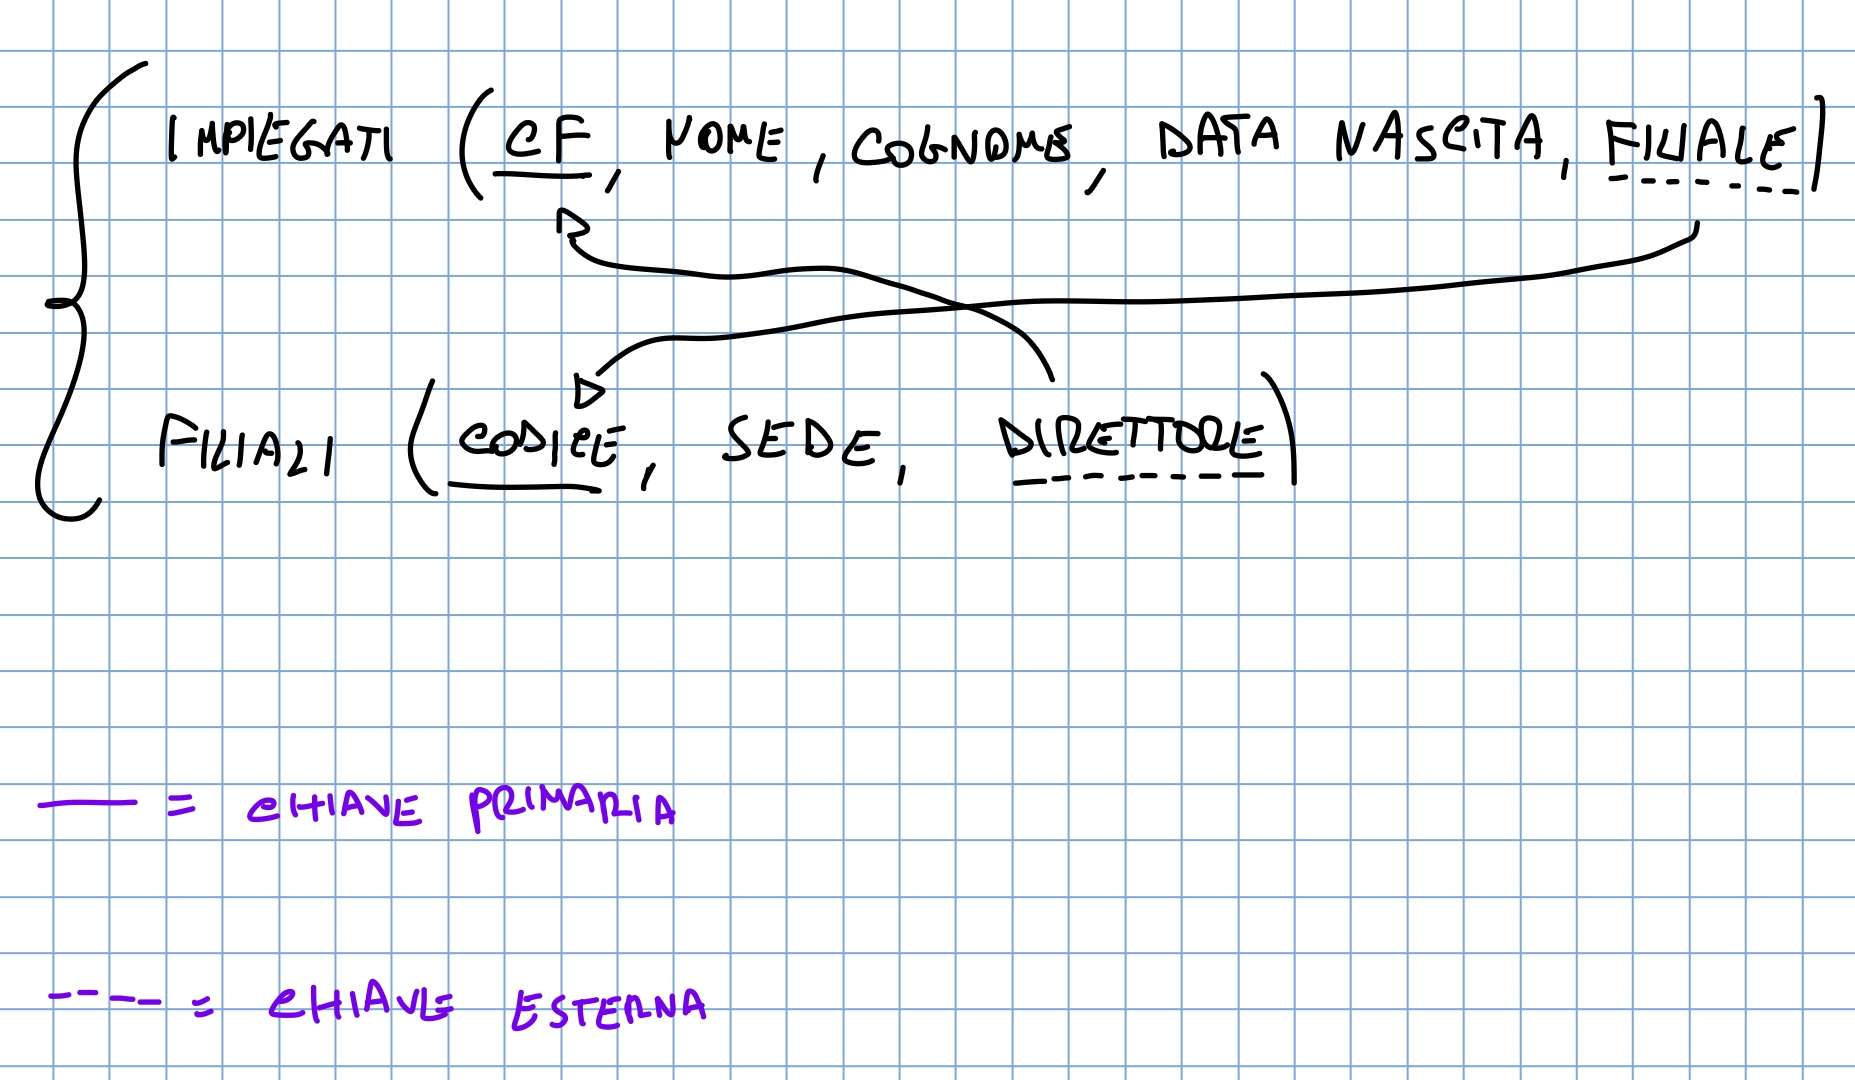 IMPIEGATI (CF, NOME, COGNOME, DATA NASCITA, FILIALE)
FILIALI (CODICE, SEDE, DIRETTORE)
= CHIAVE PRIMARIA
= CHIAVE ESTERNA